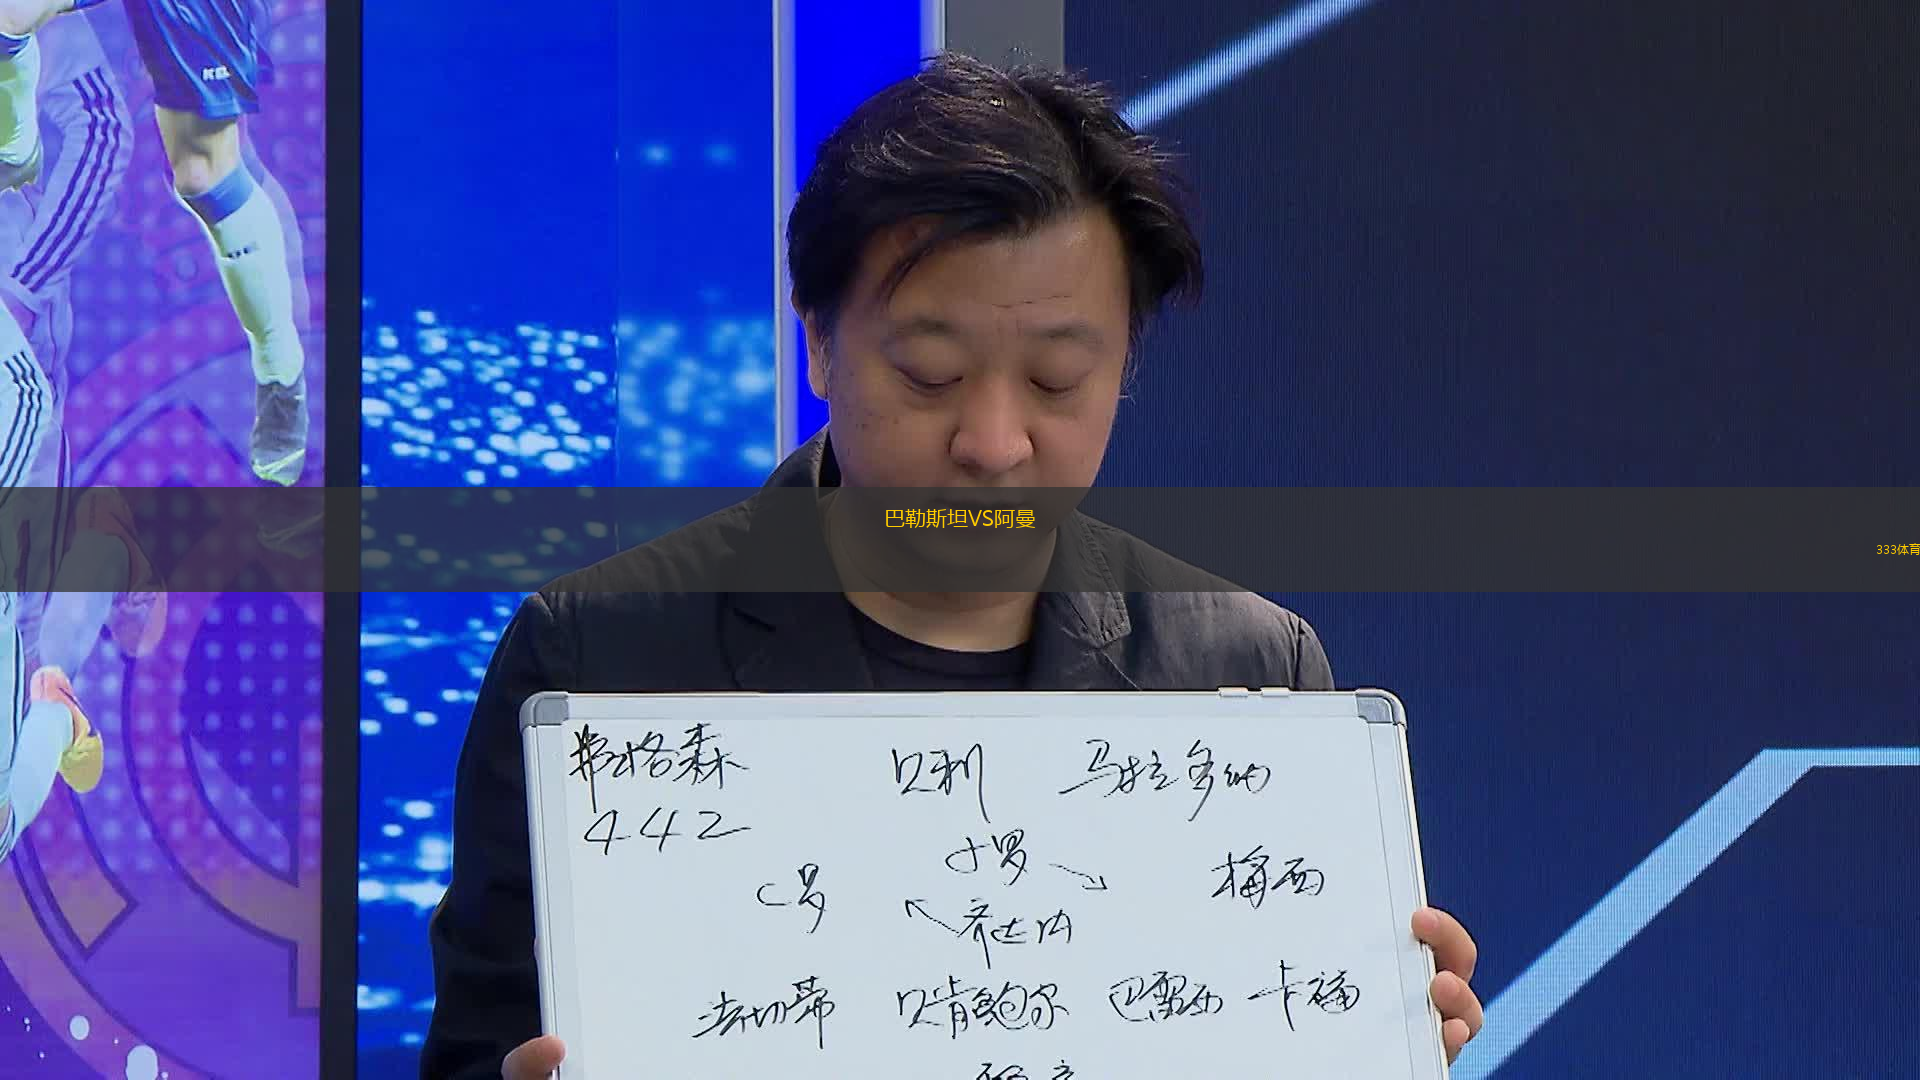 巴勒斯坦VS阿曼
333体育
弗格森 贝利 马拉多纳
442
小罗
C罗 梅西
齐达内
法切蒂 贝肯鲍尔 巴雷西 卡福